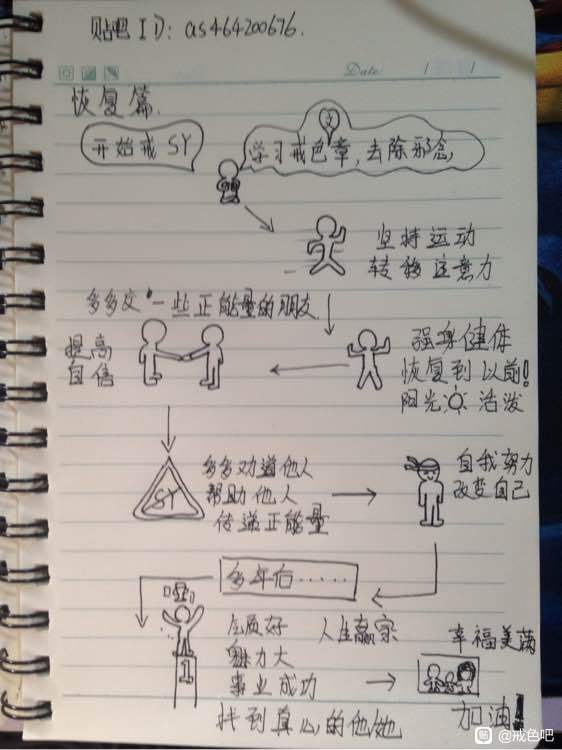 贴吧 ID: as464200676.
Date / /
恢复篇.
开始戒SY
学习戒色文章,去除邪念,
坚持运动
转移注意力
多多交一些正能量的朋友
提高
自信
强身健体
恢复到以前!
阳光 活泼
SY
多多劝道他人
帮助他人
传递正能量
自我努力
改变自己
多年后……
气质好
魅力大
事业成功
找到真心的他她
人生赢家
1
幸福美满
加油!
@戒色吧